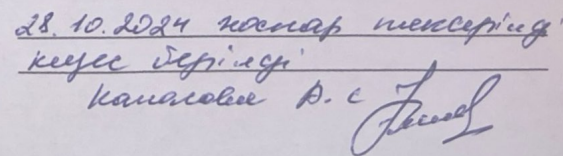 28.10.2024 жоспар тексерілді
кеңес берілді
Капасовна А. с